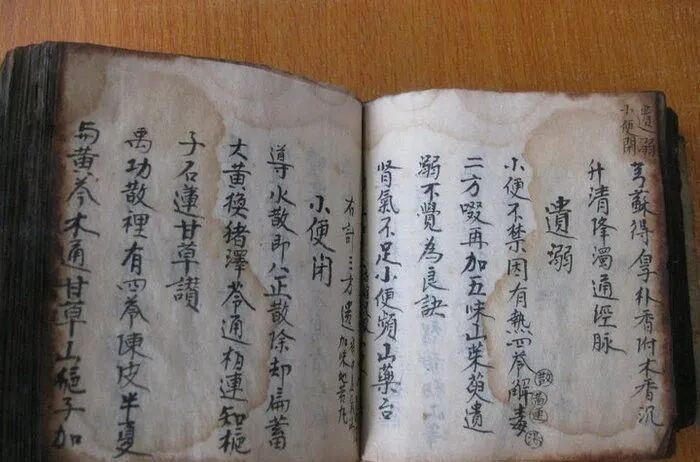 遺溺
小便閉
芎蘇得厚朴香附木香沉
升清降濁通經脉
遺溺
小便不禁因有熱四苓解毒
散
二方啜再加五味山茱萸遺
溺不覺為良訣
腎氣不足小便頻山藥
右計三方遺
加味地
小便闭
導水散即八正散除却扁蓄
大黃換猪澤苓通栢連知梔
子石蓮甘草讃
禹功散裡有四苓陳皮半夏
与黃芩木通甘草山梔子加